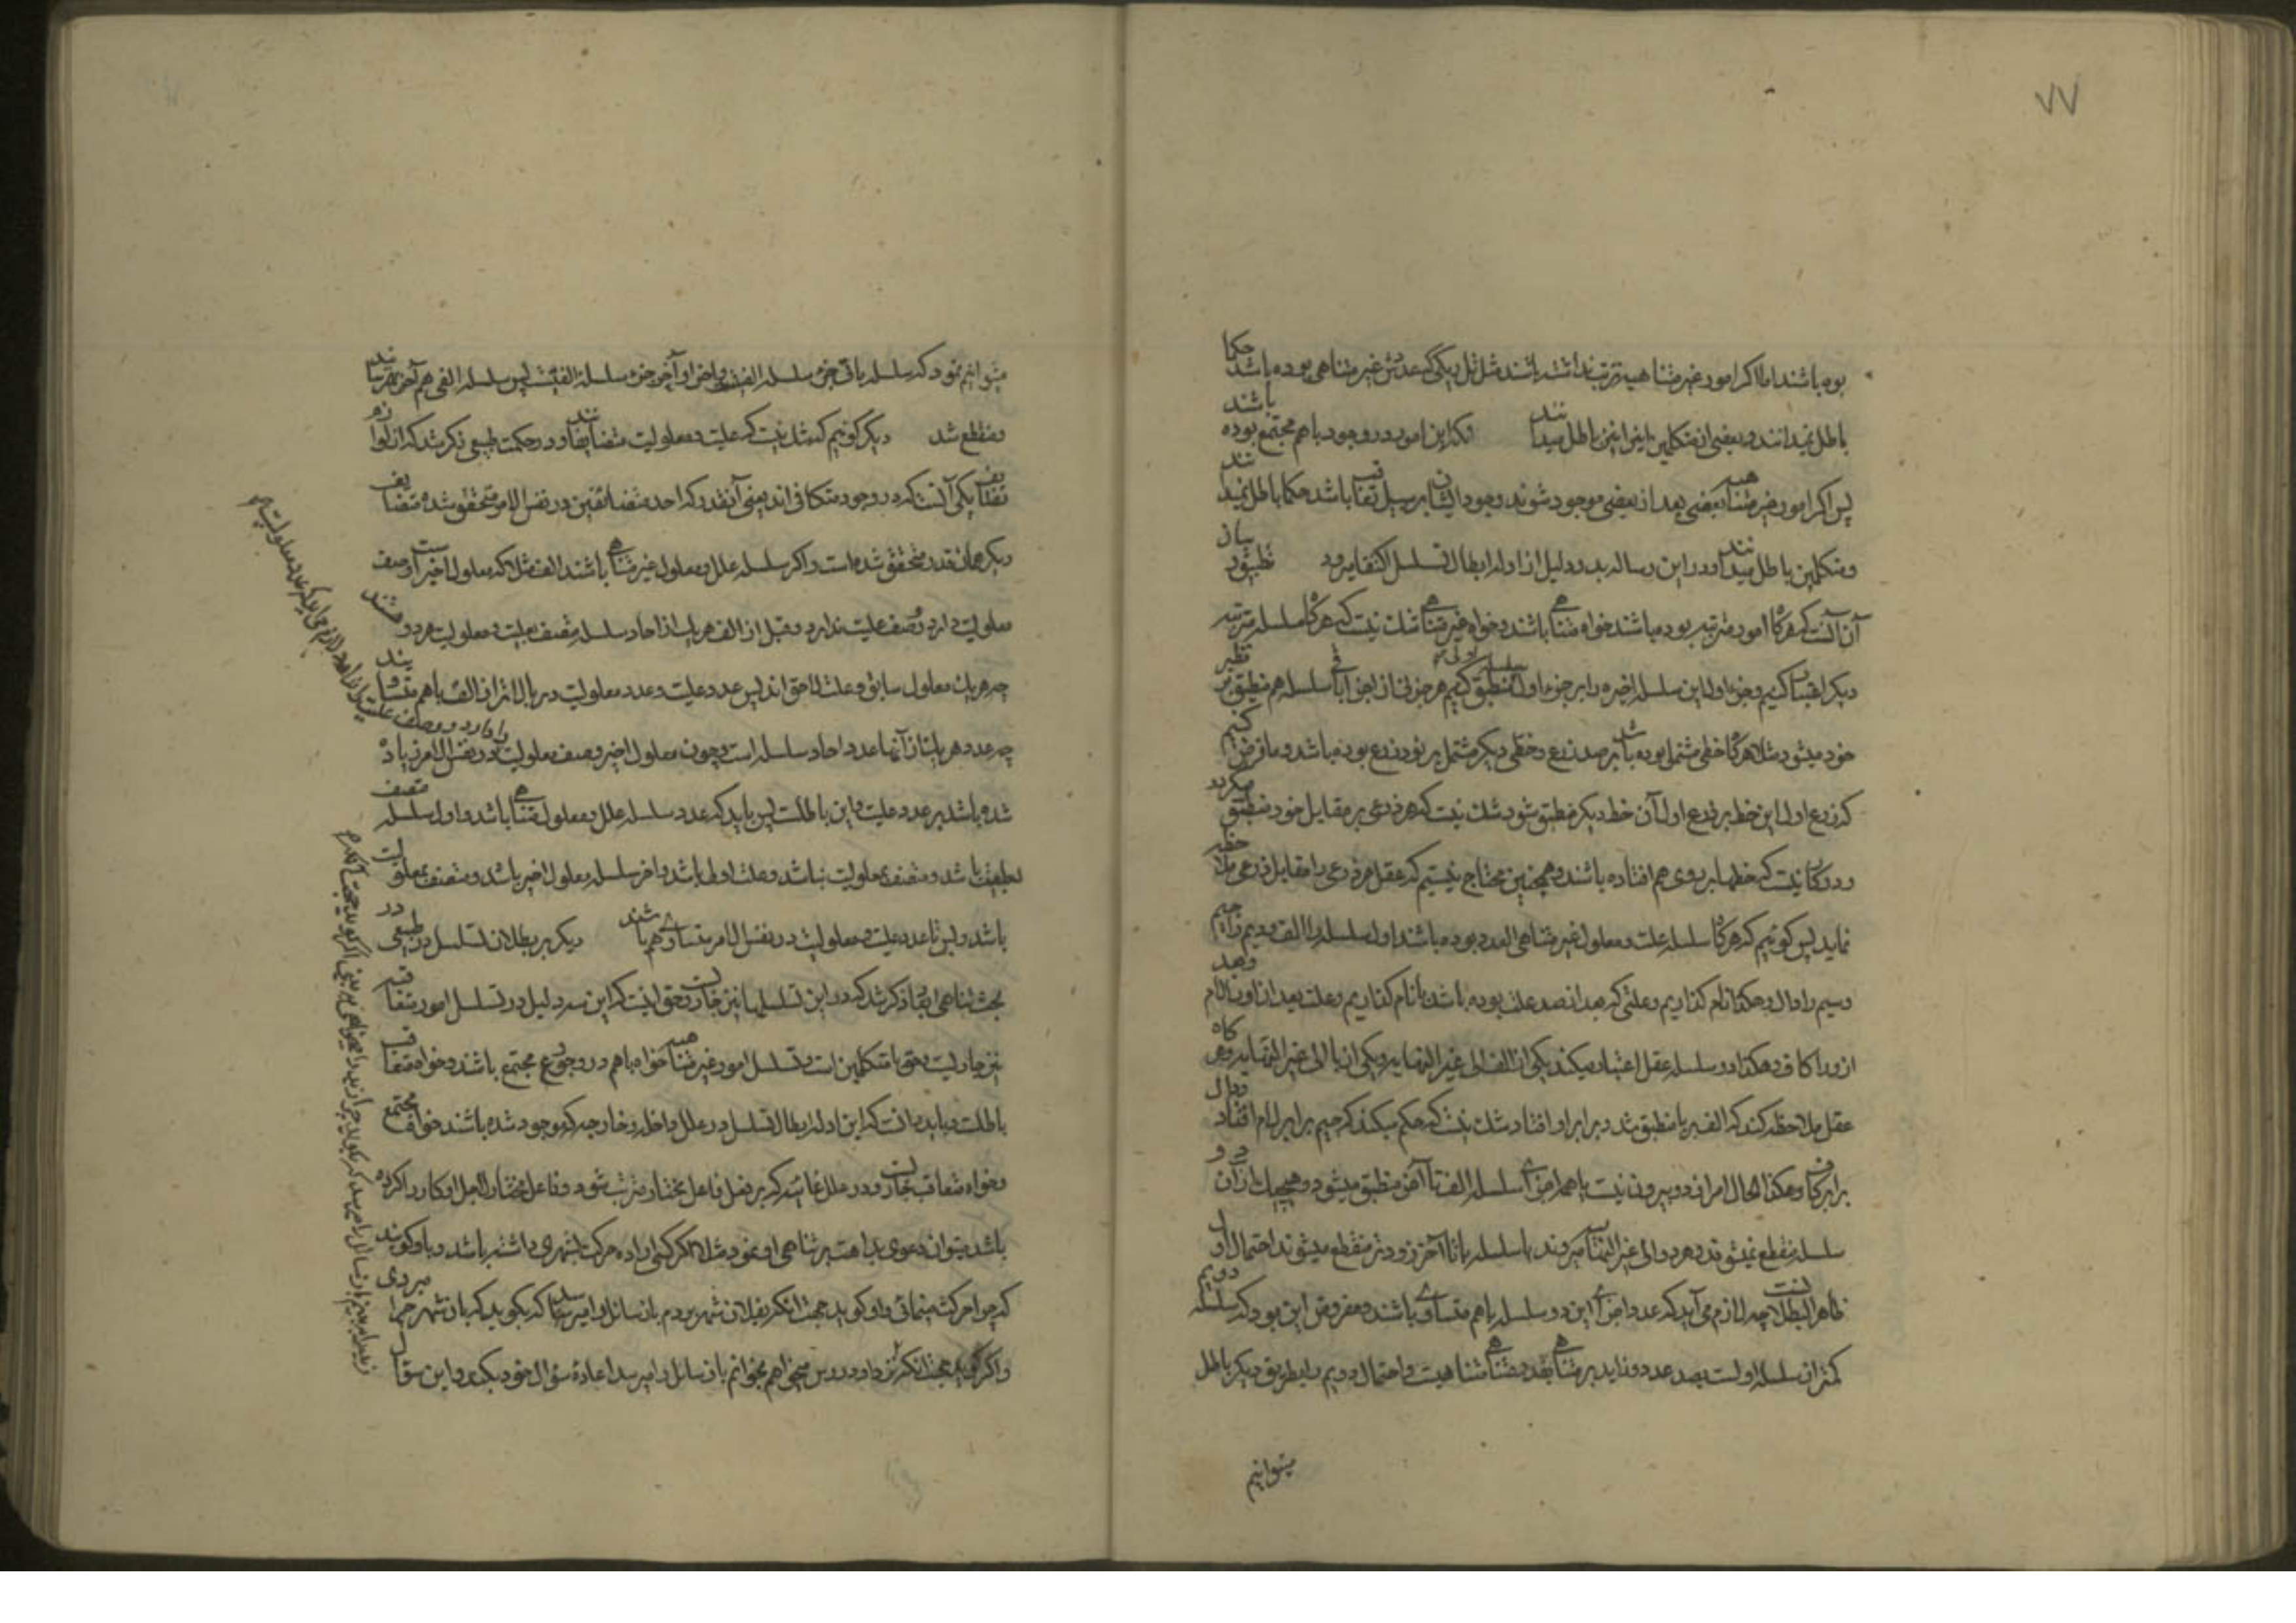 ۷۷
بوده باشند اما اگر امور غیر متناهیه ترتب نداشته باشند مثل تل ریگی که عددش غیر متناهی بوده باشد حکما
باطل نمیدانند و بعضی از متکلمین اینرا نیز باطل میدانند این امور در وجود باهم مجتمع بوده باشند
پس اگر امور غیر متناهیه بعضی بعد از بعضی موجود شوند و وجود ایشان بر سبیل تعاقب باشد حکما باطل نمیدانند
و متکلمین باطل میدانند و در این رساله بدو دلیل از ادله ابطال تسلسل اکتفا میرود بیان تطبیق
آن آنست که هرگاه امور مترتبه بوده باشند خواه متناهی باشند و خواه غیر متناهی شک نیست که هرگاه سلسله مترتبه
دیگر اعتبار کنیم و جزء اول این سلسله اخیره را بر جزء اول سلسله اولی منطبق کنیم هر جزئی از اجزای باقی سلسله هم منطبق بر نظیر
خود میشود مثلا هرگاه خطی مشتمل بوده باشد بر صد ذرع و خطی دیگر مشتمل بر نود ذرع بوده باشد و ما فرض کنیم
که ذرع اول این خط بر ذرع اول آن خط دیگر منطبق شود شک نیست که هر ذرعی بر مقابل خود منطبق میگردد
و در کار نیست که خطها بر روی هم افتاده باشند و همچنین محتاج نیستیم که عقل هر ذرعی را مقابل ذرعی ملاحظه
نماید پس گوئیم که هرگاه سلسله علت و معلول غیر متناهی العدد بوده باشند اول سلسله را الف و دویم را جیم
و سیم را دال و هکذا نام گذاریم و علتی که بعد از صد علت بوده باشد با نام گذاریم و علت بعد از او را لام و بعد
از او را کاف و هکذا دو سلسله عقل اعتبار میکند یکی از الف الی غیر النهایه و یکی از با الی غیر النهایه و هر گاه
عقل ملاحظه کند که الف بر با منطبق شد و برابر او افتاد شک نیست که حکم میکند که جیم برابر لام افتاد و دال
برابر کاف و هکذا الحال امر از دو بیرون نیست یا همه اجزای سلسله الف تا آخر منطبق میشود و هیچیک از آن دو
سلسله منقطع نمیشوند و هر دو الی غیر النهایه میروند یا سلسله با تا آخر زودتر منقطع میشوند احتمال اول
ظاهر البطلانست چه لازم می آید که عدد اجزای این دو سلسله باهم متساوی باشند و مفروض این بود که سلسله دویم
کمتر از سلسله اولست بصد عدد و زاید بر متناهی بقدر متناهی متناهیست و احتمال دویم را بطریق دیگر باطل
میتوانیم
میتوانیم نمود که سلسله با جزء سلسله الف پس سلسله الفی هم آخر بهم رسانید
و منقطع شد دیگر گوئیم که شک نیست که علیت و معلولیت متضایفانند و در حکمت طبیعی ذکر شد که از لوازم
تضایف یکی آنست که در وجود متکافی اند یعنی آنقدر که احد متضائفین در نفس الامر متحقق شده متضایف
دیگر همان قدر متحقق شده است و اگر سلسله علل و معلول غیر متناهی باشند الف مثلا که معلول اخیر است وصف
معلولیت دارد و وصف علیت ندارد و قبل از الف هر یک از احاد سلسله متصف بعلیت و معلولیت هر دو هستند
چه هر یک معلول سابق و علت لاحق اند پس عدد علیت و عدد معلولیت در بالاتر از الف باهم متساویند
چه عدد هر یک از آنها عدد احاد سلسله است و چون معلول اخیر وصف معلولیت را دارد و وصف علیت را ندارد
در نفس الامر زیاده
شده باشد بر عدد علیت و این باطلست پس باید که عدد سلسله علل و معلول متناهی باشد و اول سلسله متصف
بعلیت باشد و متصف بمعلولیت نباشد و علت اولی باشد و آخر سلسله معلول اخیر باشد و متصف بمعلولیت
باشد و بس تا عدد علیت و معلولیت در نفس الامر متساوی هم باشند دیگر بر بطلان تسلسل در طبیعی در
بحث تناهی ابعاد ذکر شد که در این تسلسلها نیز جاریست و حق اینست که این سه دلیل در تسلسل امور متعاقبه
نیز جاریست و حق با متکلمین است و تسلسل امور غیر متناهیه خواه باهم در وجود مجتمع باشند و خواه متعاقب
باطلست و باید دانست که این ادله ابطال تسلسل در علل داخله و خارجه که موجود شده باشند خواه مجتمع
و خواه متعاقب جاریست و در علل غائیه که بر فعل فاعل مختار مترتب شود و فاعل مختار از اجل او کار را کرده
باشد میتوان دعوی بداهت بر تناهی او نمود مثلا اگر کسی اراده حرکت بشهری داشته باشد و باو گویند
که چرا حرکت مینمائی و او گوید بجهت آنکه بفلان شهر بروم باز سائل را میرسد که بگوید که بان شهر چرا میروی
و اگر گوید بجهت آنکه درس میخواهم بخوانم باز سائل را میرسد اعاده سؤال خود بکند و این سؤال